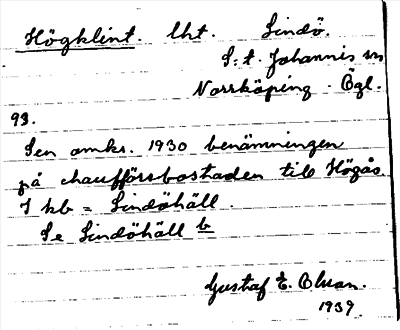 Högklint. lht. Lindö.
S:t. Johannis sn
Norrköping. Ögl.
93.
Sen omkr. 1930 benämningen
på chaufförsbostaden till Högås.
I kb = Lindöhäll.
Se Lindöhäll b
Gustaf E. Olson.
1939.